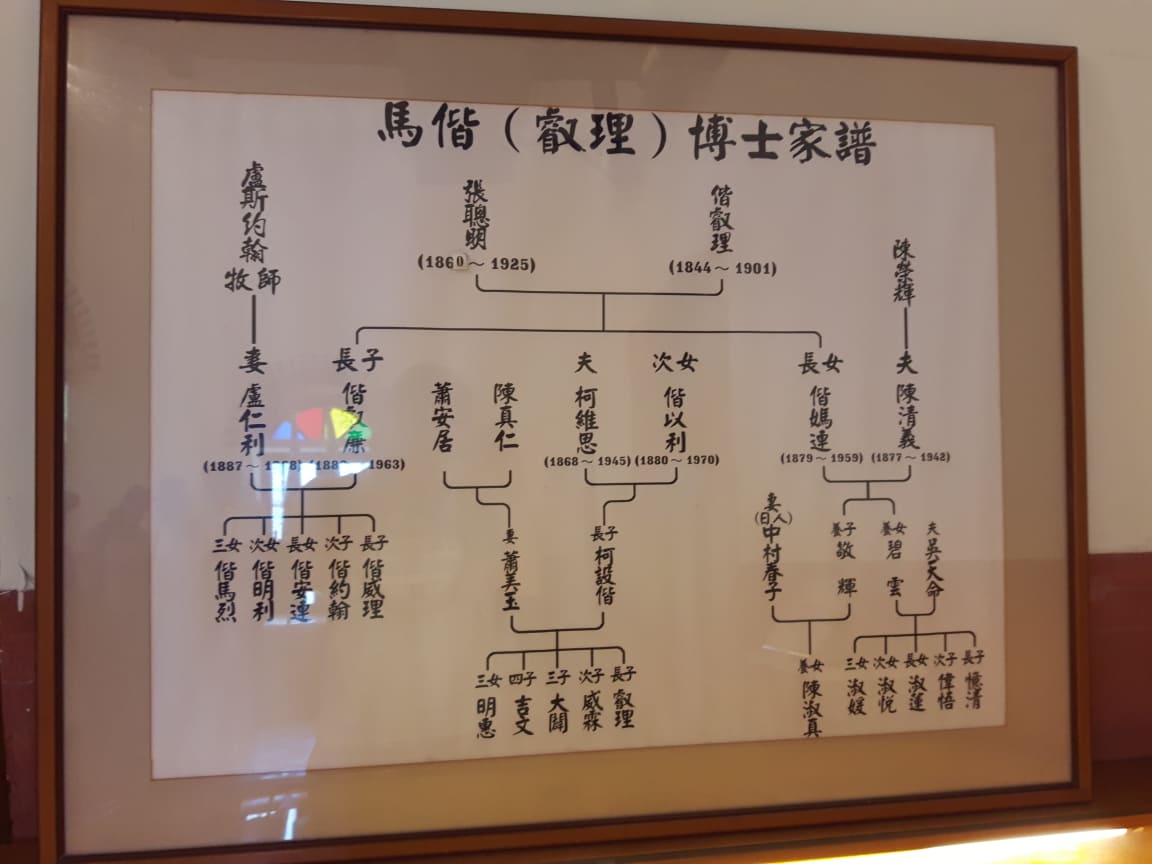 馬偕（叡理）博士家譜
盧斯約翰
牧師
張聰明
(1860～1925)
偕叡理
(1844～1901)
陳榮輝
妻
盧仁利
長子
偕叡廉
蕭安居
陳真仁
夫
柯維思
(1868～1945)
次女
偕以利
(1880～1970)
長女
偕媽連
(1879～1959)
夫
陳清義
(1877～1942)
三女
偕馬烈
次女
偕明利
長女
偕安連
次子
偕約翰
長子
偕威理
妻
蕭美玉
長子
柯設偕
妻
(日人)
中村春子
養子
敬輝
養女
碧雲
夫
吳天命
三女
明惠
四子
吉文
三子
大闢
次子
威霖
長子
叡理
養女
陳淑真
三女
淑媛
次女
淑悅
長女
淑蓮
次子
偉悟
長子
憶清